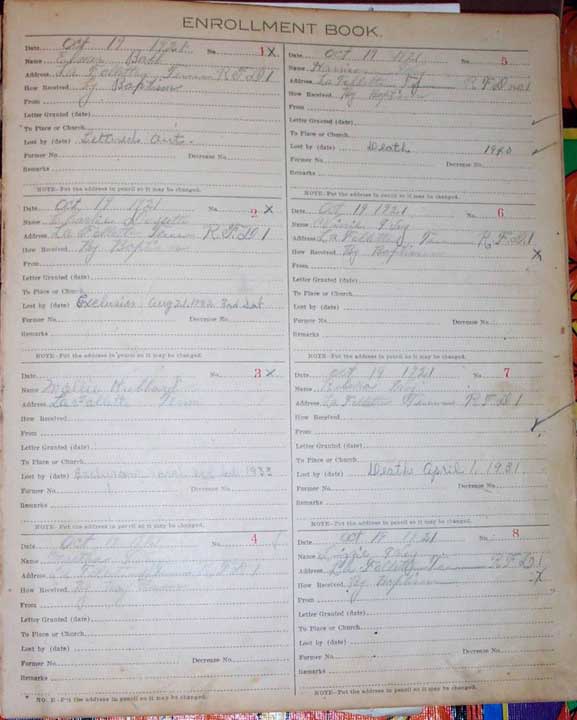 ENROLLMENT BOOK.
Date Oct 19 1921 No. 1 X
Name
Address La Follette Tenn R F D 1
How Received By Baptism
From
Letter Granted (date)
To Place or Church
Lost by (date) Lettered Out.
Former No. Decrease No.
Remarks
NOTE-Put the address in pencil so it may be changed.
Date Oct 19 1921 No. 2 X
Name
Address La Follette Tenn R.F.D.1
How Received By Baptism
From
Letter Granted (date)
To Place or Church
Lost by (date) Exclusion Aug 21, 3rd Sat
Former No. Decrease No.
Remarks
NOTE-Put the address in pencil so it may be changed.
Date No. 3 X
Name Mollie Hubbard
Address La Follette Tenn
How Received
From
Letter Granted (date)
To Place or Church
Lost by (date) 1933
Former No. Decrease No.
Remarks
NOTE-Put the address in pencil so it may be changed.
Date Oct 4
Name
Address R F D 1
How Received By
From
Letter Granted (date)
To Place or Church
Lost by (date)
Former No. Decrease No.
Remarks
NO. E-Put the address in pencil so it may be changed.
Date Oct 19 No. 5
Name
Address La Follette R F D no 1
How Received By Baptism
From
Letter Granted (date)
To Place or Church
Lost by (date) Death 1940
Former No. Decrease No.
Remarks
NOTE-Put the address in pencil so it may be changed.
Date Oct 19 1921 No. 6
Name
Address La Follette Tenn R.F.D.1
How Received By Baptism X
From
Letter Granted (date)
To Place or Church
Lost by (date)
Former No. Decrease No.
Remarks
NOTE-Put the address in pencil so it may be changed.
Date Oct 19 1921 No. 7
Name
Address La Follette Tenn R F D 1
How Received
From
Letter Granted (date)
To Place or Church
Lost by (date) Death April 1, 1931.
Former No. Decrease No.
Remarks
NOTE-Put the address in pencil so it may be changed.
Date Oct 19 1921 No. 8
Name Lizzie
Address La Follette Tenn R.F.D.1
How Received By Baptism X
From
Letter Granted (date)
To Place or Church
Lost by (date)
Former No. Decrease No.
Remarks
NOTE-Put the address in pencil so it may be changed.